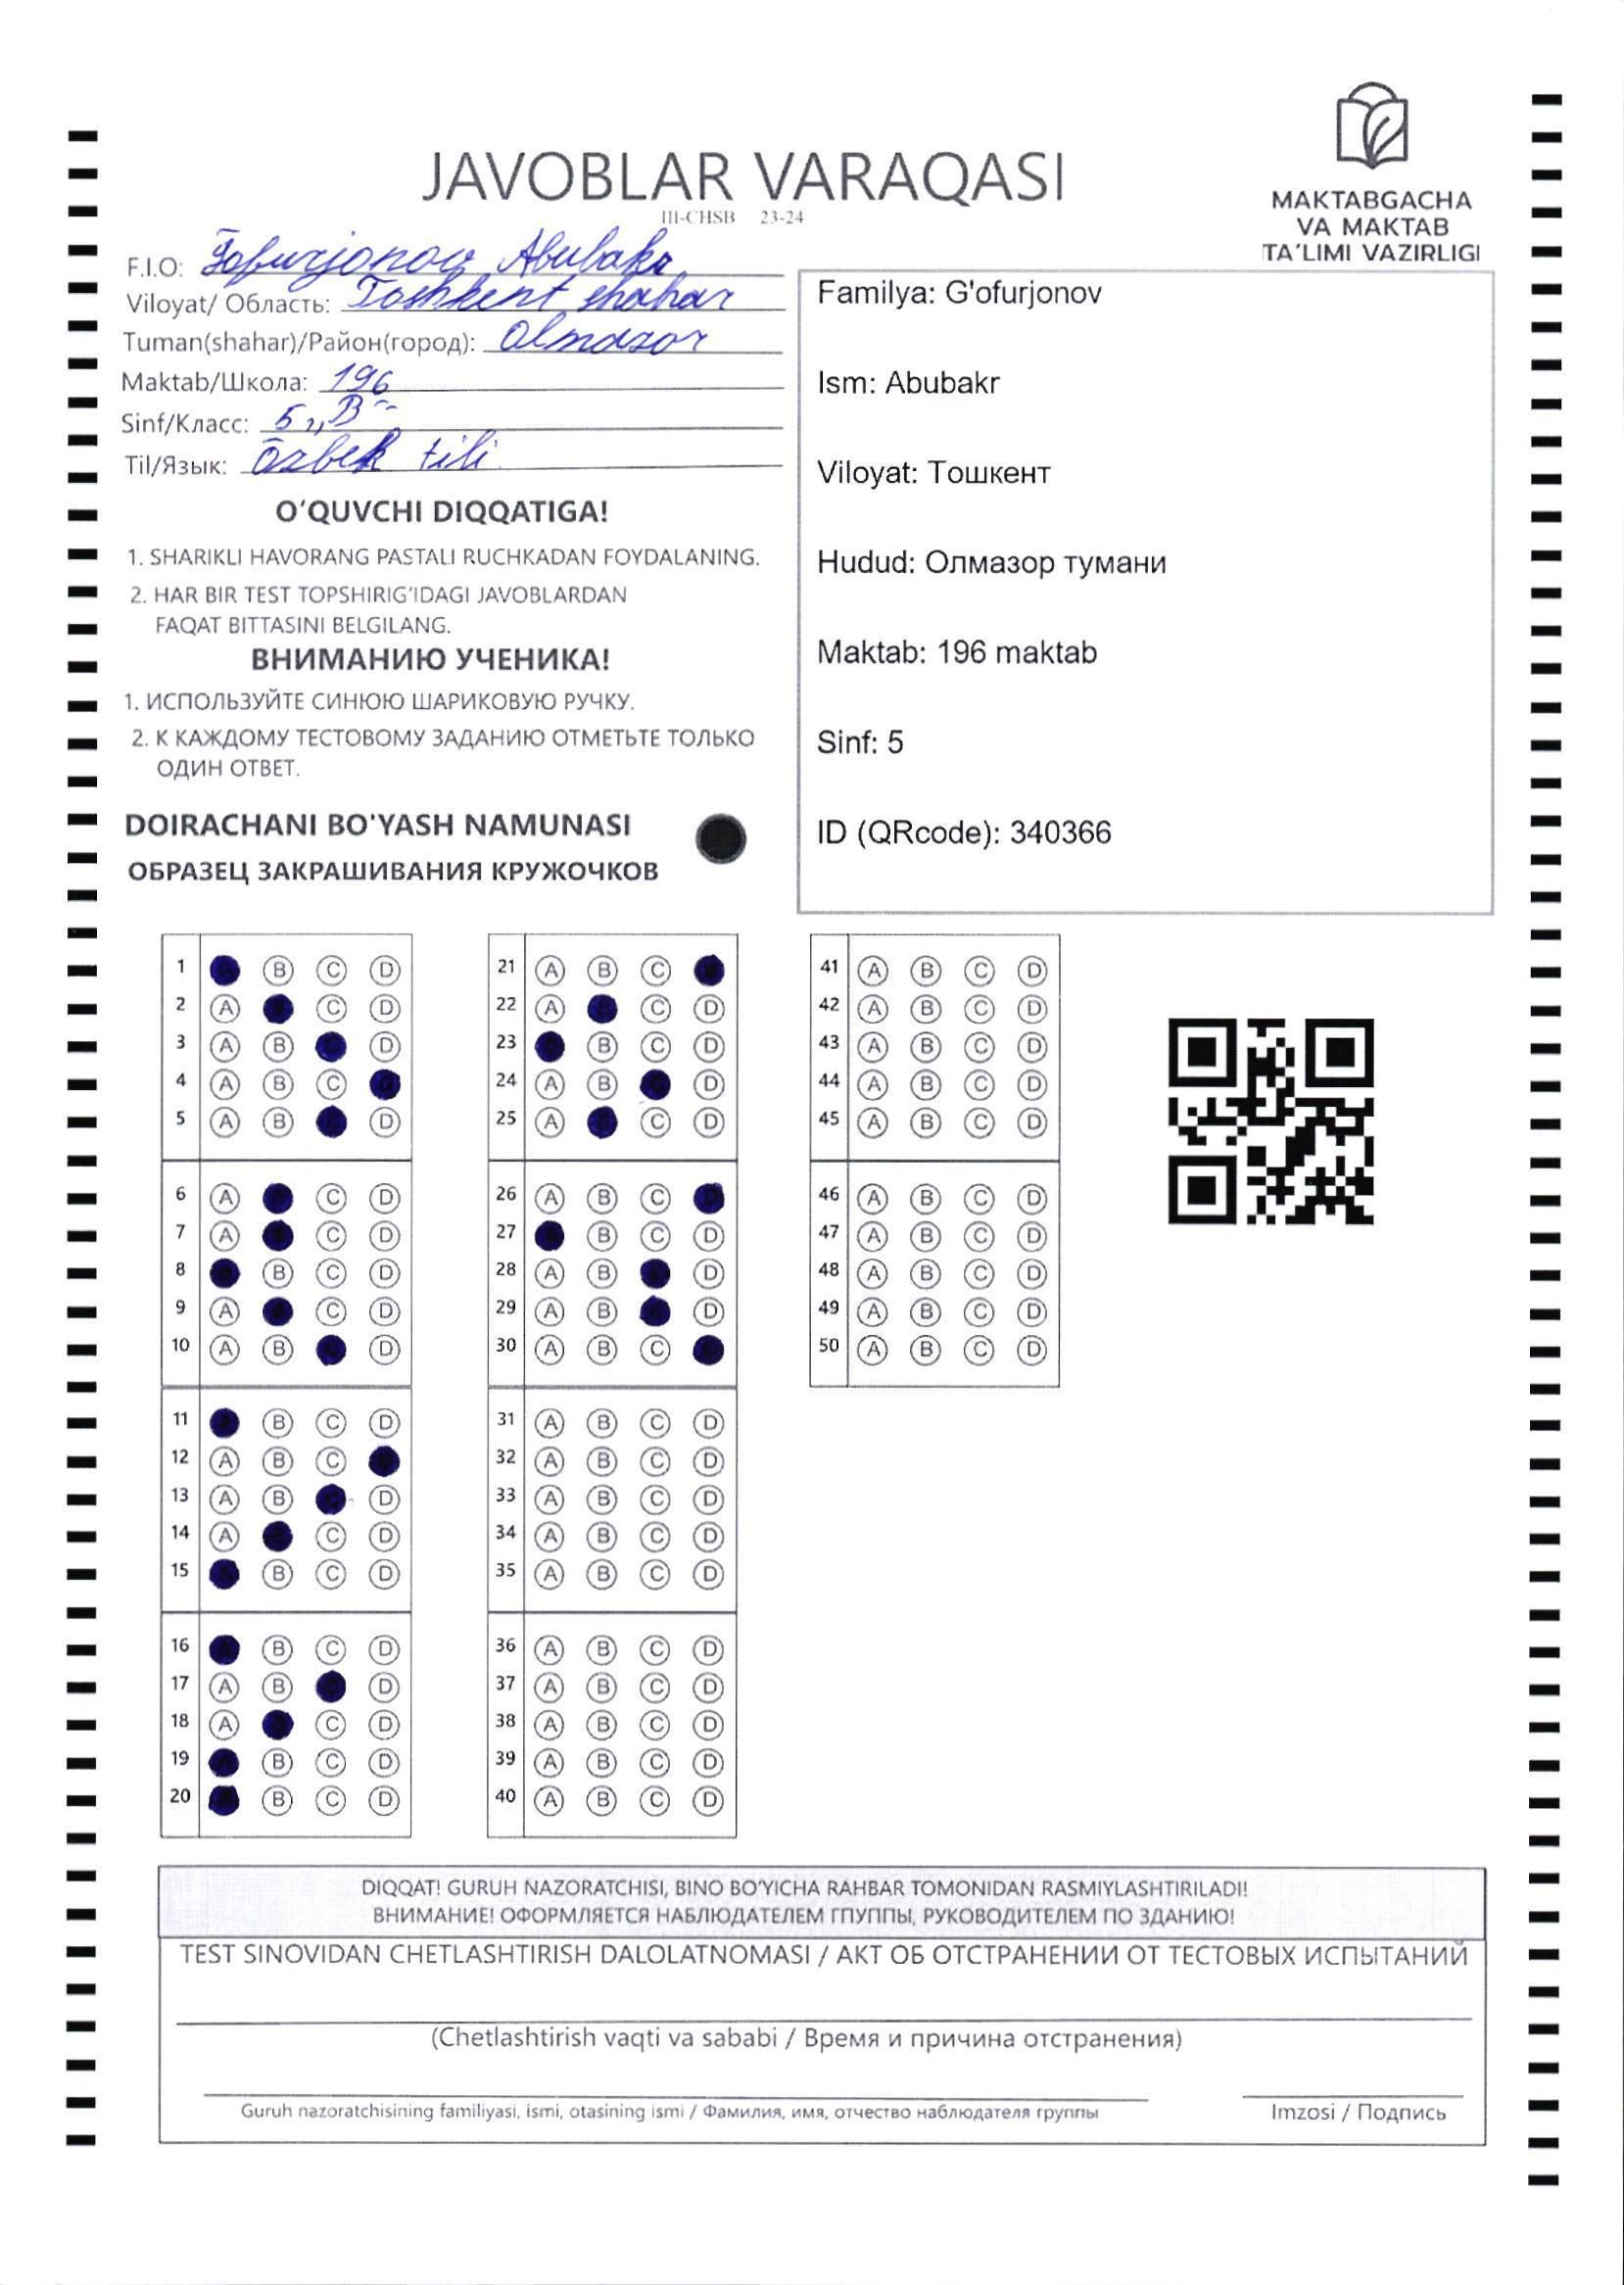 JAVOBLAR VARAQASI
III-CHSB 23-24
MAKTABGACHA
VA MAKTAB
TA'LIMI VAZIRLIGI
F.I.O: Ḡofurjonov Abubakr
Viloyat/ Область: Toshkent shahar
Tuman(shahar)/Район(город): Olmazor
Maktab/Школа: 196
Sinf/Класс: 5 „B"
Til/Язык: Ōzbek tili
O'QUVCHI DIQQATIGA!
1. SHARIKLI HAVORANG PASTALI RUCHKADAN FOYDALANING.
2. HAR BIR TEST TOPSHIRIG'IDAGI JAVOBLARDAN
FAQAT BITTASINI BELGILANG.
ВНИМАНИЮ УЧЕНИКА!
1. ИСПОЛЬЗУЙТЕ СИНЮЮ ШАРИКОВУЮ РУЧКУ.
2. К КАЖДОМУ ТЕСТОВОМУ ЗАДАНИЮ ОТМЕТЬТЕ ТОЛЬКО
ОДИН ОТВЕТ.
DOIRACHANI BO'YASH NAMUNASI
ОБРАЗЕЦ ЗАКРАШИВАНИЯ КРУЖОЧКОВ
Familya: G'ofurjonov
Ism: Abubakr
Viloyat: Тошкент
Hudud: Олмазор тумани
Maktab: 196 maktab
Sinf: 5
ID (QRcode): 340366
1 B C D
2 A C D
3 A B D
4 A B C
5 A B D
6 A C D
7 A C D
8 B C D
9 A C D
10 A B D
11 B C D
12 A B C
13 A B D
14 A C D
15 B C D
16 B C D
17 A B D
18 A C D
19 B C D
20 B C D
21 A B C
22 A C D
23 B C D
24 A B D
25 A C D
26 A B C
27 B C D
28 A B D
29 A B D
30 A B C
31 A B C D
32 A B C D
33 A B C D
34 A B C D
35 A B C D
36 A B C D
37 A B C D
38 A B C D
39 A B C D
40 A B C D
41 A B C D
42 A B C D
43 A B C D
44 A B C D
45 A B C D
46 A B C D
47 A B C D
48 A B C D
49 A B C D
50 A B C D
DIQQAT! GURUH NAZORATCHISI, BINO BO'YICHA RAHBAR TOMONIDAN RASMIYLASHTIRILADI!
ВНИМАНИЕ! ОФОРМЛЯЕТСЯ НАБЛЮДАТЕЛЕМ ГПУППЫ, РУКОВОДИТЕЛЕМ ПО ЗДАНИЮ!
TEST SINOVIDAN CHETLASHTIRISH DALOLATNOMASI / АКТ ОБ ОТСТРАНЕНИИ ОТ ТЕСТОВЫХ ИСПЫТАНИЙ
(Chetlashtirish vaqti va sababi / Время и причина отстранения)
Guruh nazoratchisining familiyasi, ismi, otasining ismi / Фамилия, имя, отчество наблюдателя группы
Imzosi / Подпись